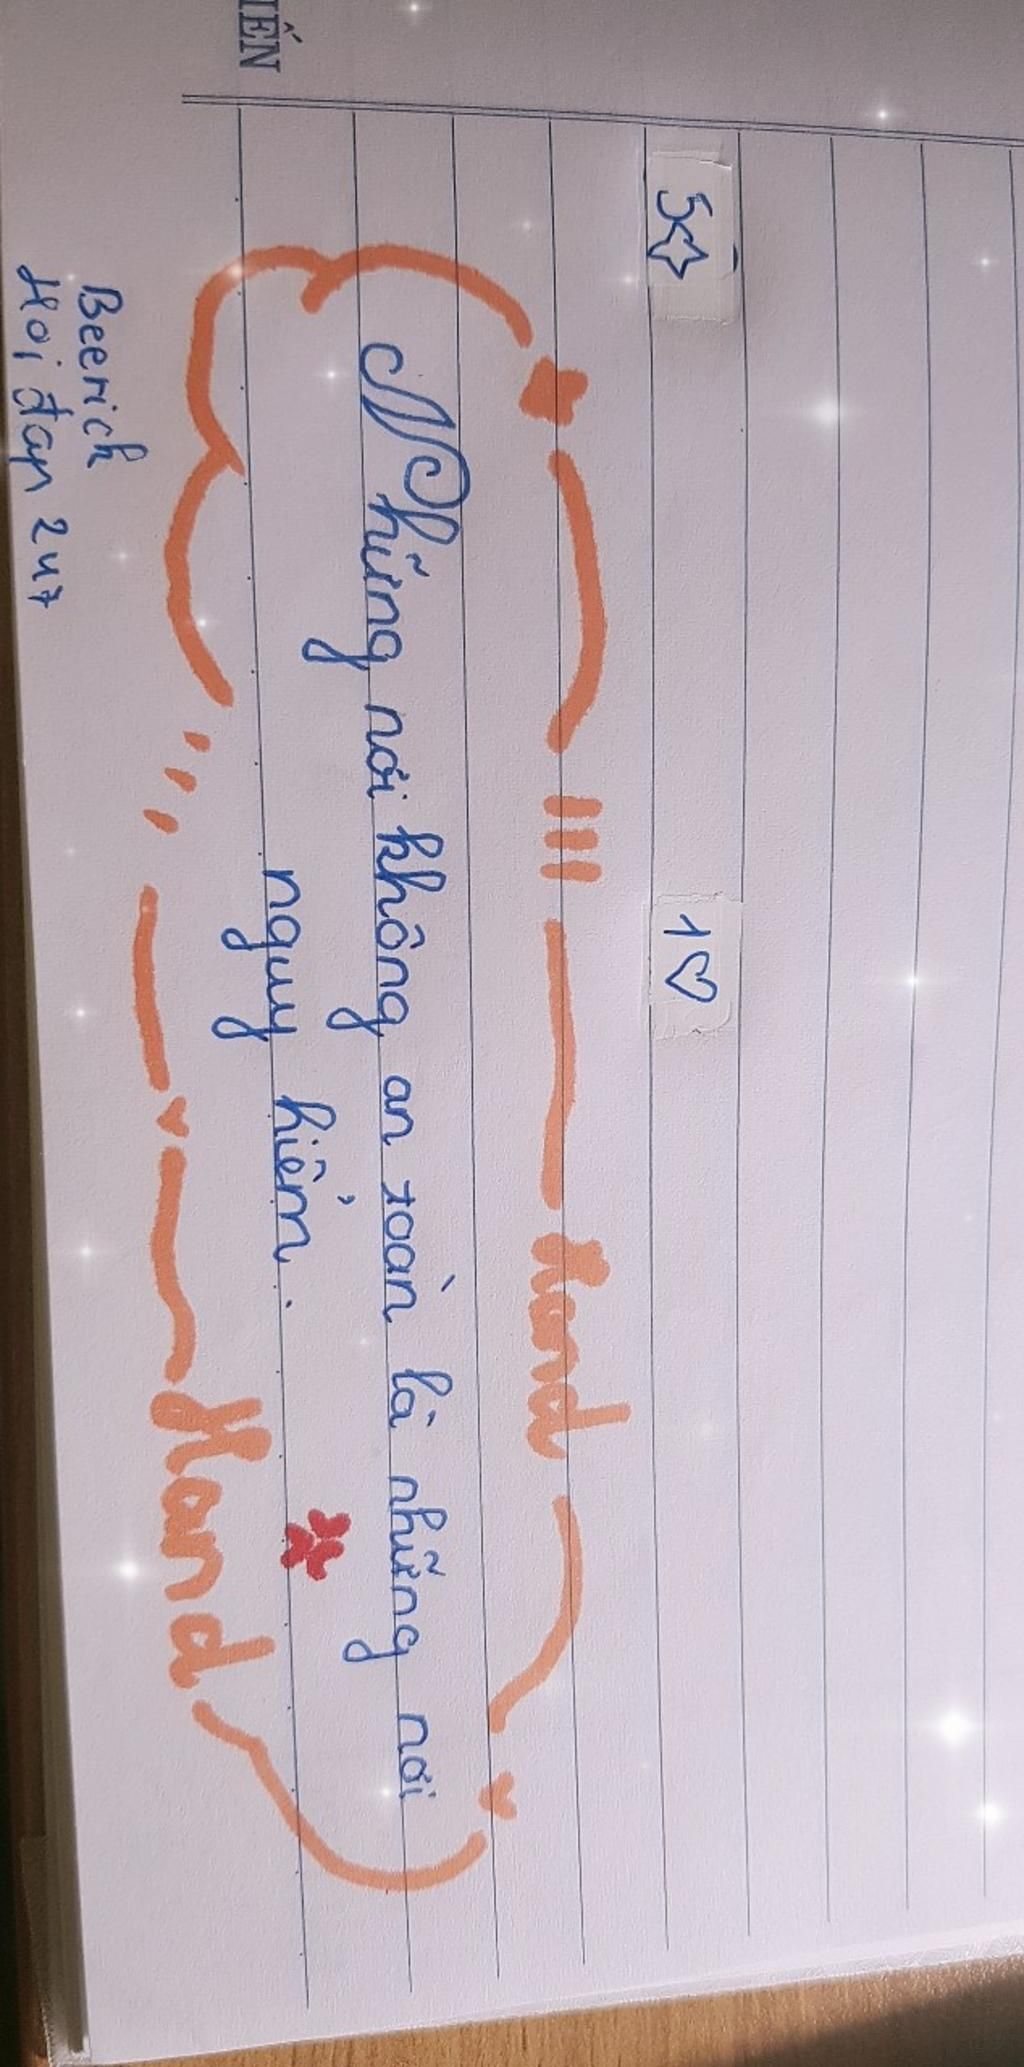 IẾN
5☆
1♡
Hand
Những nơi không an toàn là những nơi
nguy hiểm.
Hand
Beerich
Hỏi đáp 247